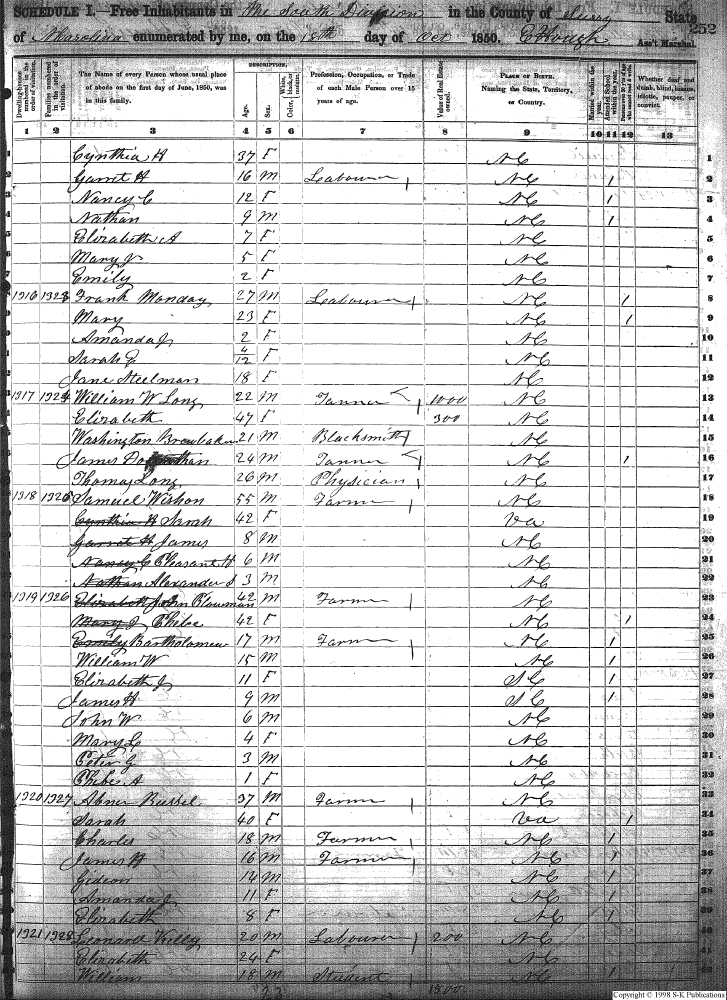 SCHEDULE I.—Free Inhabitants in The South Division in the County of Surry State
of N Carolina enumerated by me, on the 18th day of Oct 1850. Ass't Marshal.
252
Dwelling-houses numbered in the order of visitation.
Families numbered in the order of visitation.
The Name of every Person whose usual place of abode on the first day of June, 1850, was in this family.
DESCRIPTION.
Age.
Sex.
Color, White, black, or mulatto.
Profession, Occupation, or Trade of each Male Person over 15 years of age.
Value of Real Estate owned.
PLACE OF BIRTH. Naming the State, Territory, or Country.
Married within the year.
Attended School within the year.
Whether deaf and dumb, blind, insane, idiotic, pauper, or convict.
1 2 3 4 5 6 7 8 9 10 11 12 13
1 Cynthia H 37 F NC 1
2 Garret H 16 M Leabourer / NC 1 2
3 Nancy C 12 F NC 1 3
4 Nathan 9 M NC 1 4
5 Elizabeth A 7 F NC 5
6 Mary J 5 F NC 6
7 Emily 2 F NC 7
8 1916 1923 Frank Monday 27 M Leabourer / NC 1 8
9 Mary 23 F NC 1 9
10 Amanda J 2 F NC 10
11 Sarah E 4/12 F NC 11
12 Jane Steelman 18 F NC 12
13 1917 1924 William W Long 22 M Tanner 1000 NC 13
14 Elizabeth 47 F 300 NC 14
15 Washington Brewbaker 21 M Blacksmith / NC 15
16 James 24 M Tanner NC 1 16
17 Thomas Long 26 M Physician / NC 17
18 1918 1925 Samuel Wishon 55 M Farmer / NC 18
19 Cynthia H Sarah 42 F Va 19
20 Garret H James 8 M NC 20
21 Nancy C Pleasant H 6 M NC 21
22 Nathan Alexander S 3 M NC 22
23 1919 1926 Elizabeth John Plowman 42 M Farmer / NC 23
24 Mary J Phibe 42 F NC 1 24
25 Emily Bartholomew 17 M Farmer / NC 1 25
26 William W 15 M NC 1 26
27 Elizabeth J 11 F SC 1 27
28 James H 9 M SC 1 28
29 John W 6 M NC 29
30 Mary L 4 F NC 30
31 Peter G 3 M NC 31
32 Phibe A 1 F NC 32
33 1920 1927 Abner Russel 37 M Farmer / NC 33
34 Sarah 40 F Va 1 34
35 Charles 18 M Farmer / NC 1 35
36 James H 16 M Farmer / NC 1 36
37 Gideon 14 M NC 1 37
38 Amanda J 11 F NC 1 38
39 Elizabeth 8 F NC 1 39
40 1921 1928 Leonard Kelly 20 M Labourer / 200 NC 40
41 Elizabeth 24 F NC 41
42 William 18 M Student / NC 1 42
1500
Copyright © 1998 S-K Publications